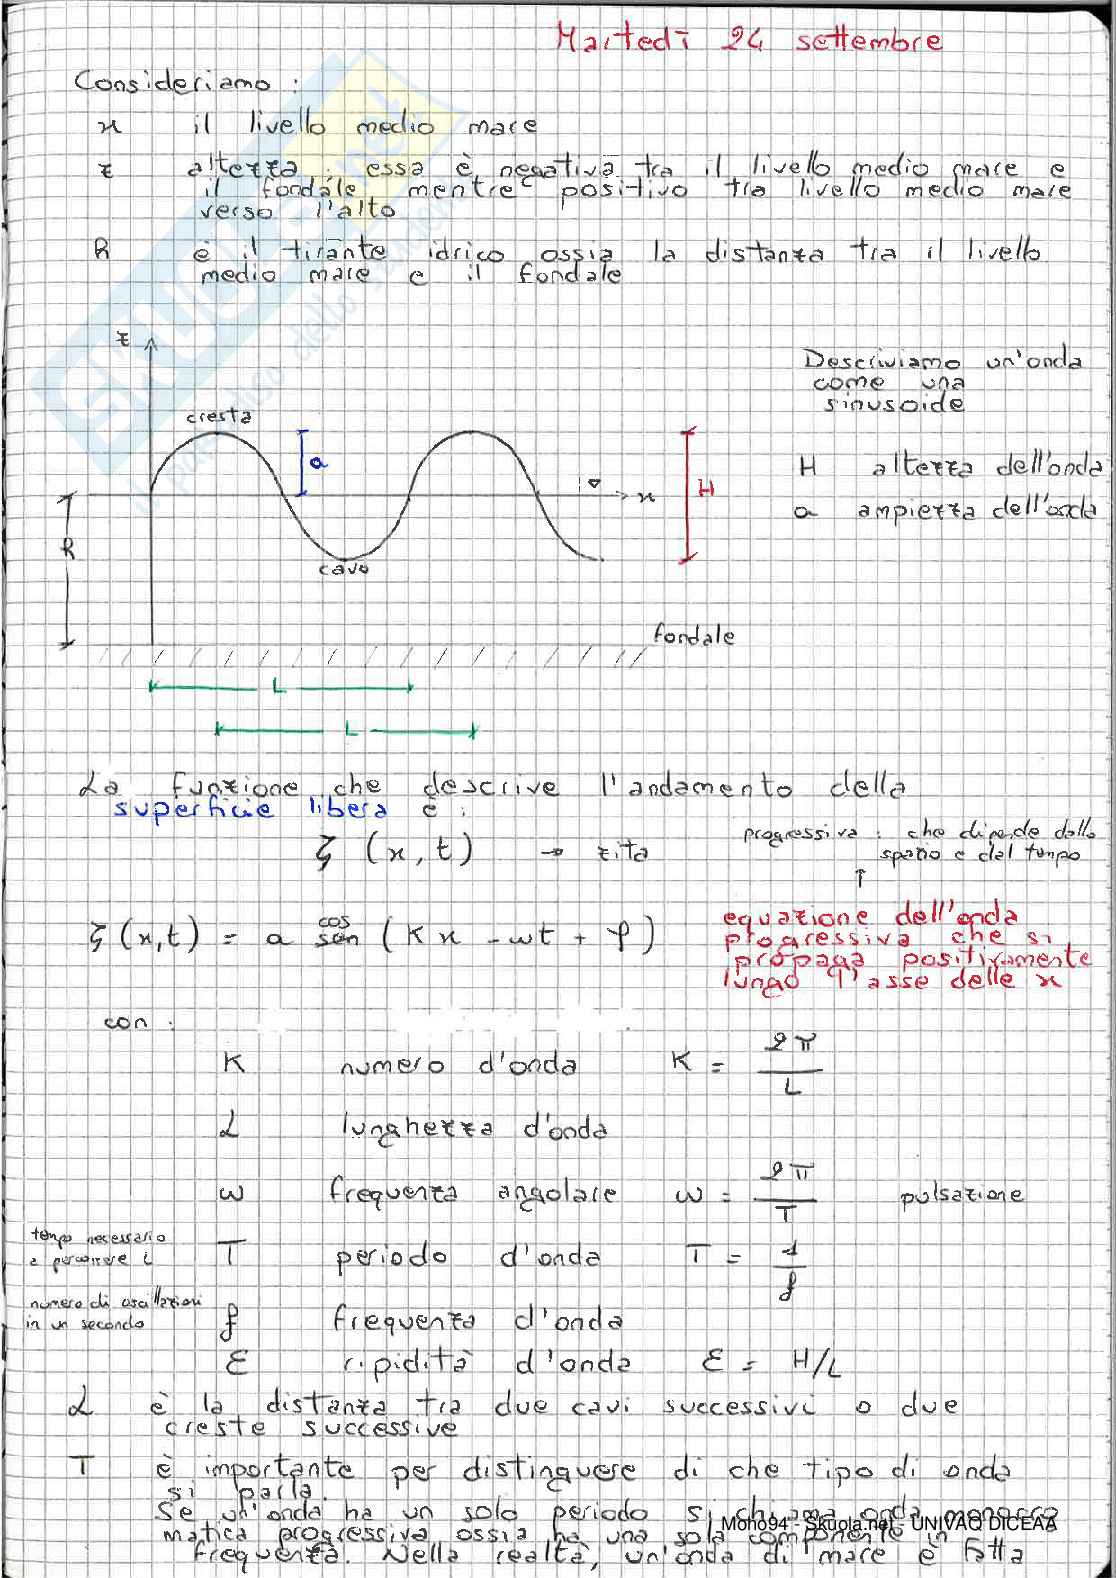 Martedì 24 settembre
Consideriamo :
x il livello medio mare
z altezza ; essa è negativa tra il livello medio mare e
il fondale mentre positivo tra livello medio mare
verso l'alto
h è il tirante idrico ossia la distanza tra il livello
medio mare e il fondale
z
Descriviamo un'onda
come una
sinusoide
cresta
a
H altezza dell'onda
x
H
a ampiezza dell'onda
h
cavo
fondale
L
L
La funzione che descrive l'andamento della
superficie libera è :
ζ (x,t) → zita
progressiva : che dipende dallo
spazio e dal tempo
↑
ζ (x,t) = a cos sen (Kx - ωt + φ)
equazione dell'onda
progressiva che si
propaga positivamente
lungo l'asse delle x
con :
K numero d'onda K = 2π / L
L lunghezza d'onda
ω frequenza angolare ω = 2π / T pulsazione
tempo necessario
a percorrere L
T periodo d'onda T = 1 / f
numero di oscillazioni
in un secondo
f frequenza d'onda
ε ripidità d'onda ε = H/L
L è la distanza tra due cavi successivi o due
creste successive
T è importante per distinguere di che tipo di onda
si parla.
Se un'onda ha un solo periodo si chiama onda monocro
matica progressiva ossia ha una sola componente in
frequenza. Nella realtà, un'onda di mare è fatta
Moho94 - Skuola.net - UNIVAQ DICEAA